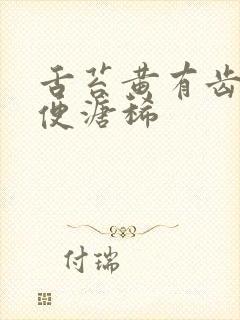 舌苔黄有齿
便溏稀
付瑞